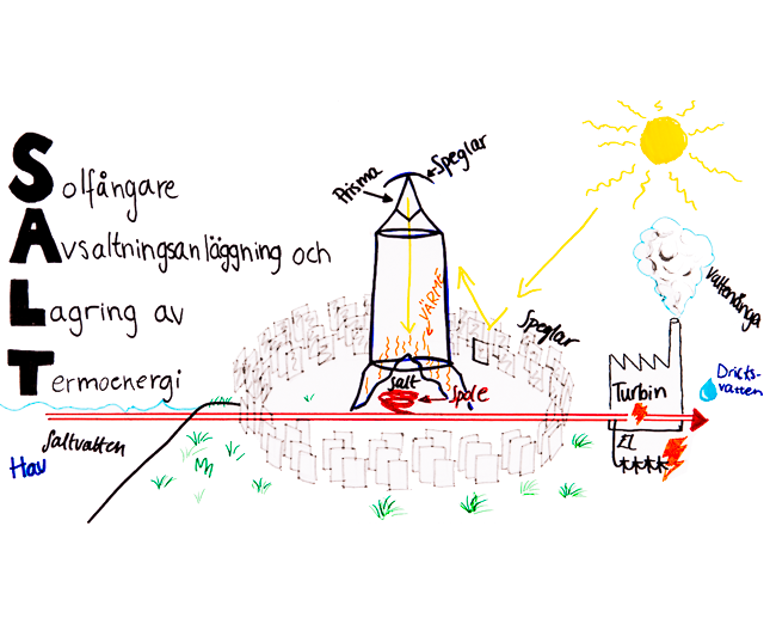 Solfångare
Avsaltningsanläggning och
Lagring av
Termoenergi
Prisma
Speglar
VÄRME
Speglar
Salt
Spole
Saltvatten
Hav
vattenånga
Turbin
El
Dricks-
vatten